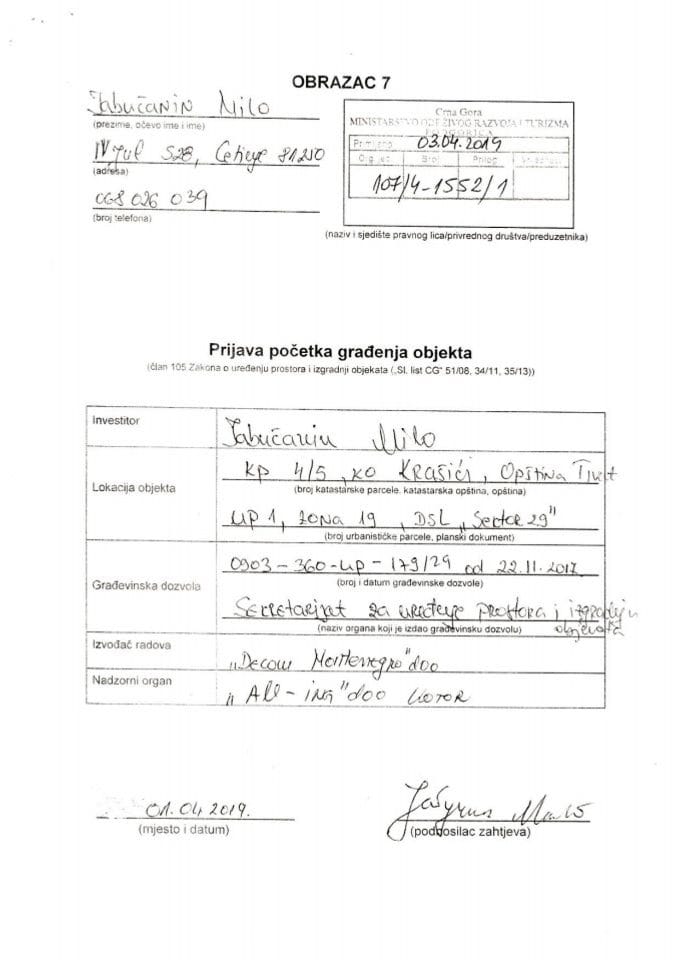 OBRAZAC 7
Jabučanin Milo
(prezime, očevo ime i ime)
IV Jul S28, Cetinje 81250
(adresa)
068 026 039
(broj telefona)
Crna Gora
MINISTARSTVO ODRŽIVOG RAZVOJA I TURIZMA
PODGORICA
Primljeno: 03.04.2019
Org. jed. Broj Prilog Vrijednost
107/4-1552/1
(naziv i sjedište pravnog lica/privrednog društva/preduzetnika)
Prijava početka građenja objekta
(član 105 Zakona o uređenju prostora i izgradnji objekata („Sl. list CG“ 51/08, 34/11, 35/13))
Investitor
Jabučanin Milo
Lokacija objekta
KP 4/5, KO Krašići, Opština Tivat
(broj katastarske parcele, katastarska opština, opština)
UP 1, zona 19, DSL „Sector 29"
(broj urbanističke parcele, planski dokument)
Građevinska dozvola
0903-360-up-179/29 od 22.11.2017
(broj i datum građevinske dozvole)
Sekretarijat za uređenje prostora i izgradnju objekata
(naziv organa koji je izdao građevinsku dozvolu)
Izvođač radova
„Decom Montenegro" doo
Nadzorni organ
„All-ing" doo Kotor
01.04.2019.
(mjesto i datum)
(podnosilac zahtjeva)